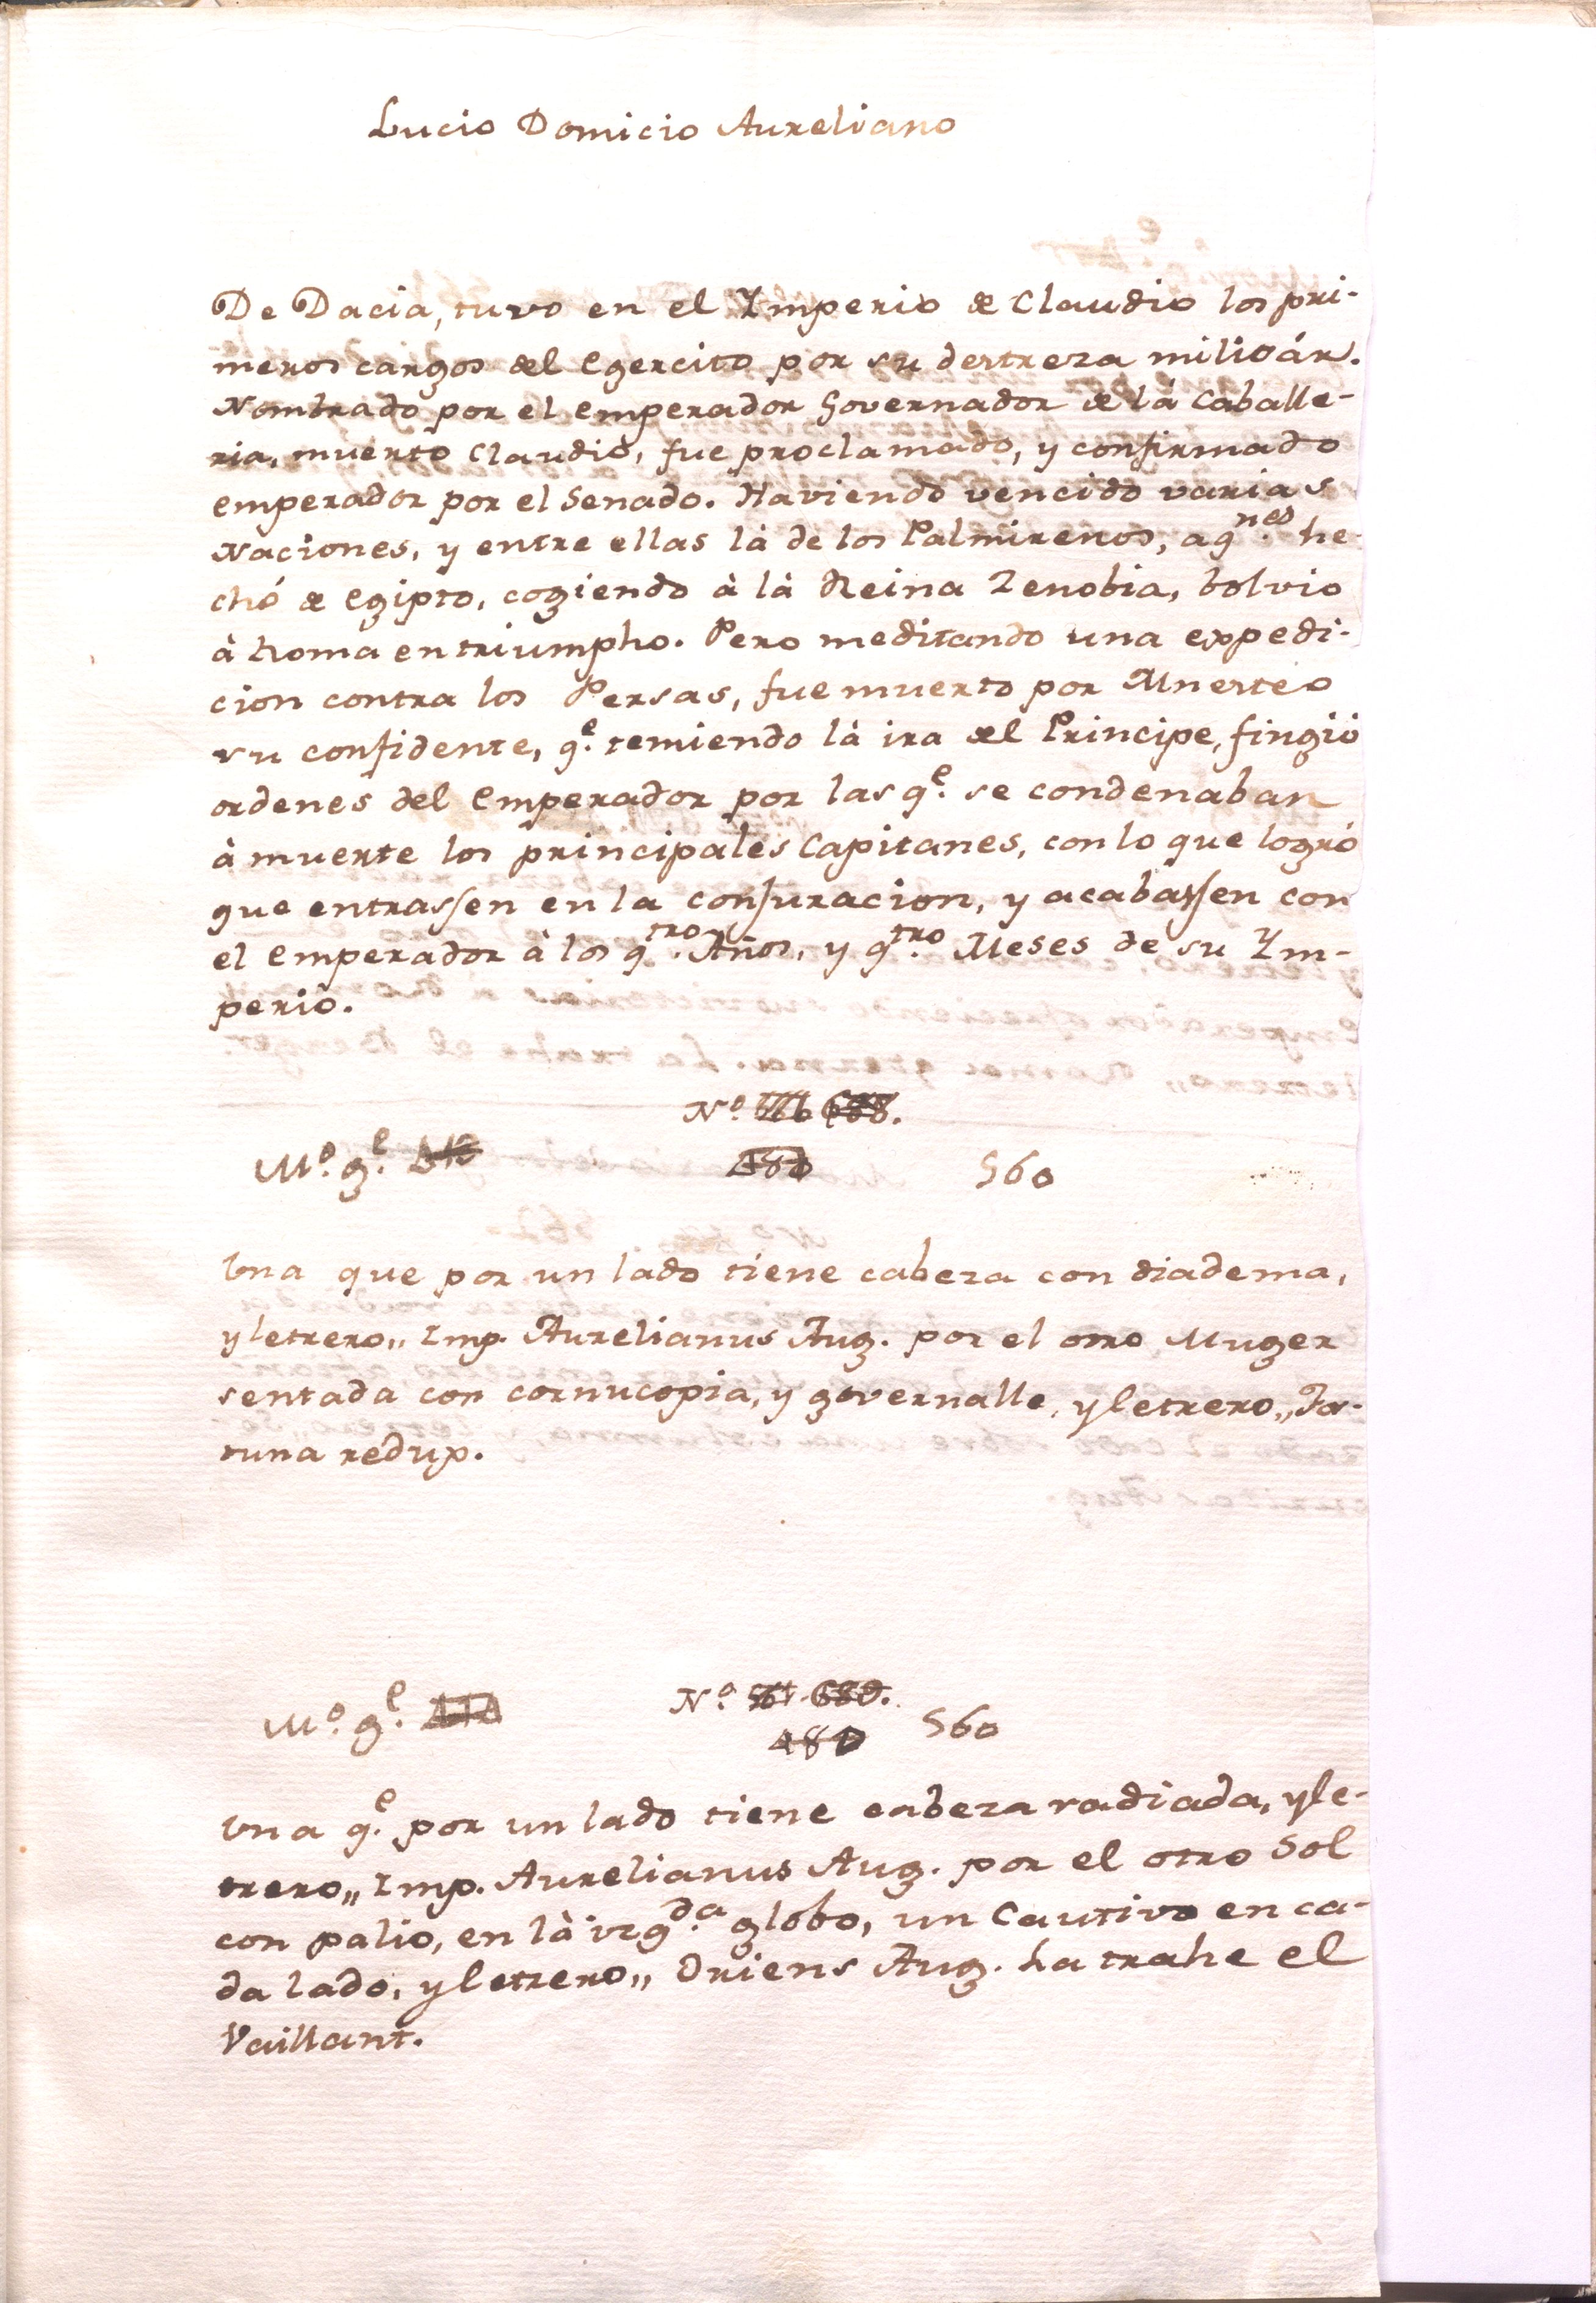 Lucio Domicio Aureliano
De Dacia, tuvo en el Ymperio de Claudio los pri-
meros cargos del Egercito por su destreza militár.
Nombrado por el emperador Governador de là Caballe-
ria, muerto Claudio, fue proclamado, y confirmado
emperador por el Senado. Haviendo vencido varias
Naciones, y entre ellas là de los Palmirenos, aq.nes he-
chó de Egipto, cogiendo à là Reina Zenobia, bolvio
à Roma en triumpho. Pero meditando una expedi-
cion contra los Persas, fue muerto por Mnesteo
su confidente, q.e temiendo là ira del Principe, fingió
ordenes del Emperador por las q.e se condenaban
à muerte los principales Capitanes, con lo que logró
que entrassen en la conjuracion, y acabassen con
el Emperador à los q.tro Años, y q.tro Meses de su Ym-
perio.
N.o 688.
M.o g.e 480 560
Una que por un lado tiene cabeza con diadema,
y letrero,, Imp. Aurelianus Aug. por el otro Muger
sentada con cornucopia, y governalle, y letrero,, For-
tuna redux.
M.o g.e N.o 561 689.
480 560
Una q.e por un lado tiene cabeza radiada, y le-
trero,, Imp. Aurelianus Aug. por el otro Sol
con palio, en là izq.da globo, un Cautivo en ca-
da lado, y letrero,, Oriens Aug. La trahe el
Vaillant.